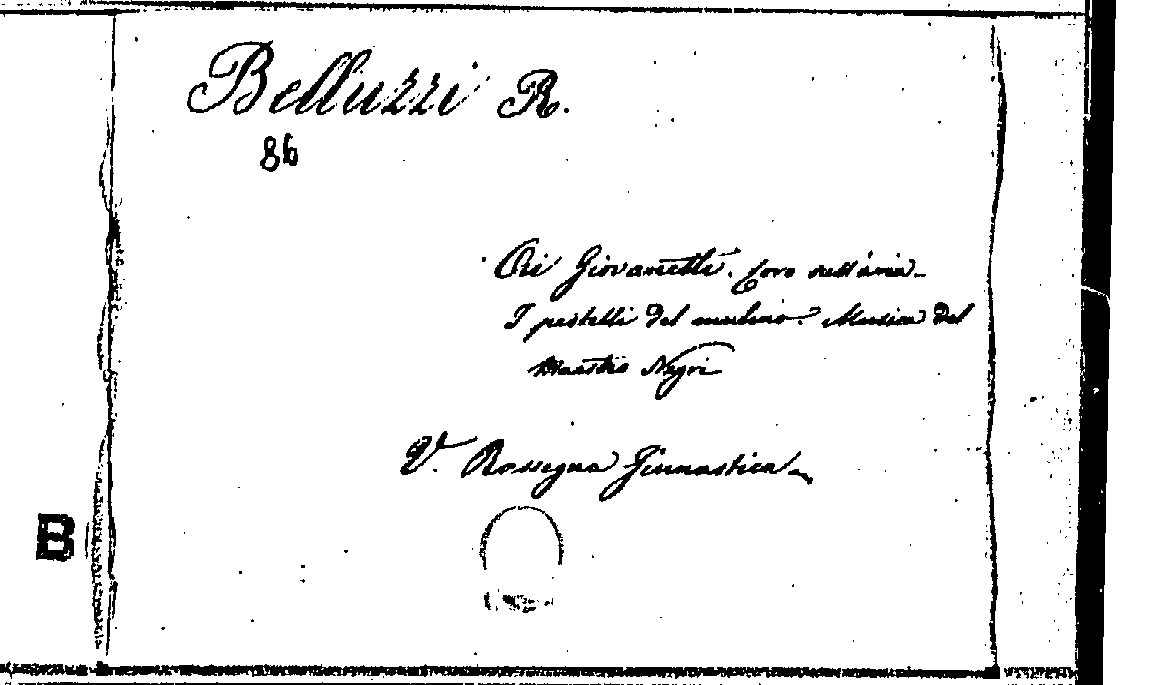 Belluzzi R.
86
Ai Giovanetti. Coro sull'aria
I pestelli del mulino. Musica del
Maestro Negri
V. Rassegna Ginnastica
B